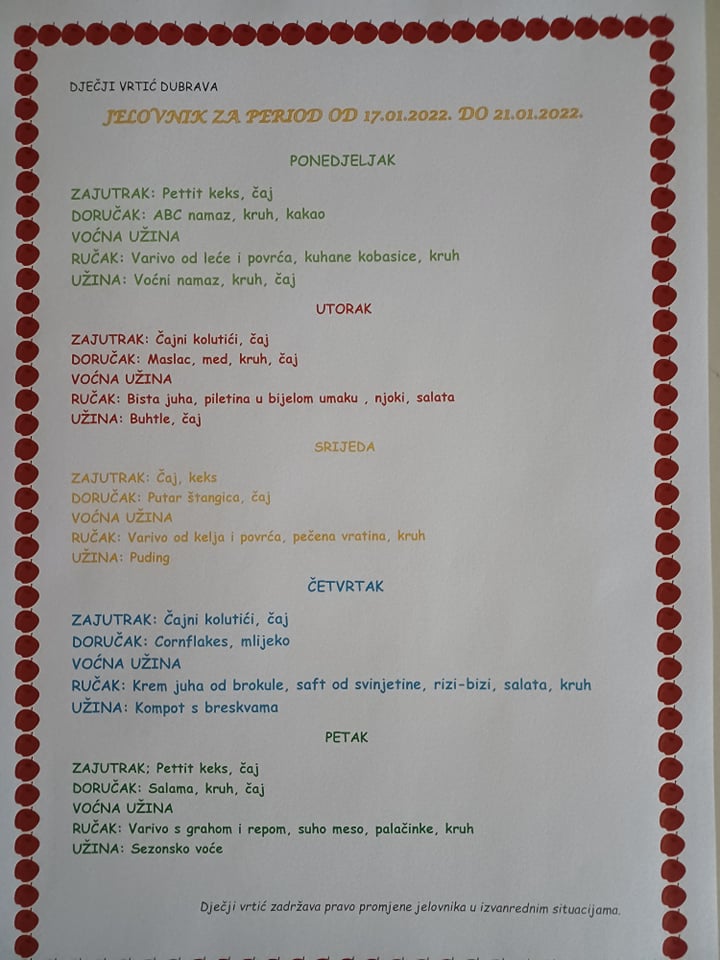 DJEČJI VRTIĆ DUBRAVA
JELOVNIK ZA PERIOD OD 17.01.2022. DO 21.01.2022.
PONEDJELJAK
ZAJUTRAK: Pettit keks, čaj
DORUČAK: ABC namaz, kruh, kakao
VOĆNA UŽINA
RUČAK: Varivo od leće i povrća, kuhane kobasice, kruh
UŽINA: Voćni namaz, kruh, čaj
UTORAK
ZAJUTRAK: Čajni kolutići, čaj
DORUČAK: Maslac, med, kruh, čaj
VOĆNA UŽINA
RUČAK: Bista juha, piletina u bijelom umaku , njoki, salata
UŽINA: Buhtle, čaj
SRIJEDA
ZAJUTRAK: Čaj, keks
DORUČAK: Putar štangica, čaj
VOĆNA UŽINA
RUČAK: Varivo od kelja i povrća, pečena vratina, kruh
UŽINA: Puding
ČETVRTAK
ZAJUTRAK: Čajni kolutići, čaj
DORUČAK: Cornflakes, mlijeko
VOĆNA UŽINA
RUČAK: Krem juha od brokule, saft od svinjetine, rizi-bizi, salata, kruh
UŽINA: Kompot s breskvama
PETAK
ZAJUTRAK; Pettit keks, čaj
DORUČAK: Salama, kruh, čaj
VOĆNA UŽINA
RUČAK: Varivo s grahom i repom, suho meso, palačinke, kruh
UŽINA: Sezonsko voće
Dječji vrtić zadržava pravo promjene jelovnika u izvanrednim situacijama.